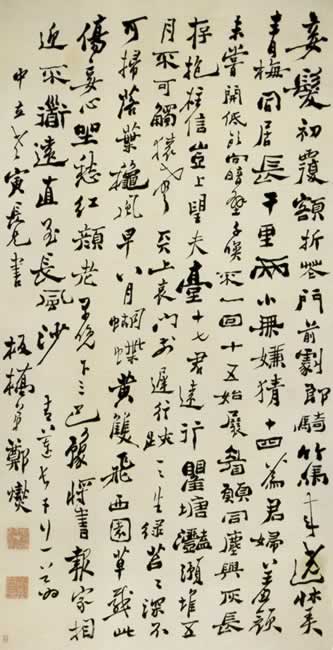 妾髮初覆額折花門前劇郎騎竹馬來遶床弄
青梅同居長干里兩小無嫌猜十四為君婦羞顏
未嘗開低頭向暗壁千喚不一回十五始展眉願同塵與灰長
存抱柱信豈上望夫臺十七君遠行瞿塘灩澦堆五
月不可觸猿聲天上哀門前遲行跡一一生綠苔苔深不
可掃落葉秋風早八月蝴蝶黃雙飛西園草感此
傷妾心坐愁紅顏老早晚下三巴預將書報家相
迎不道遠直至長風沙 青蓮長干行一首為
中立老寅長兄書 板橋弟鄭燮